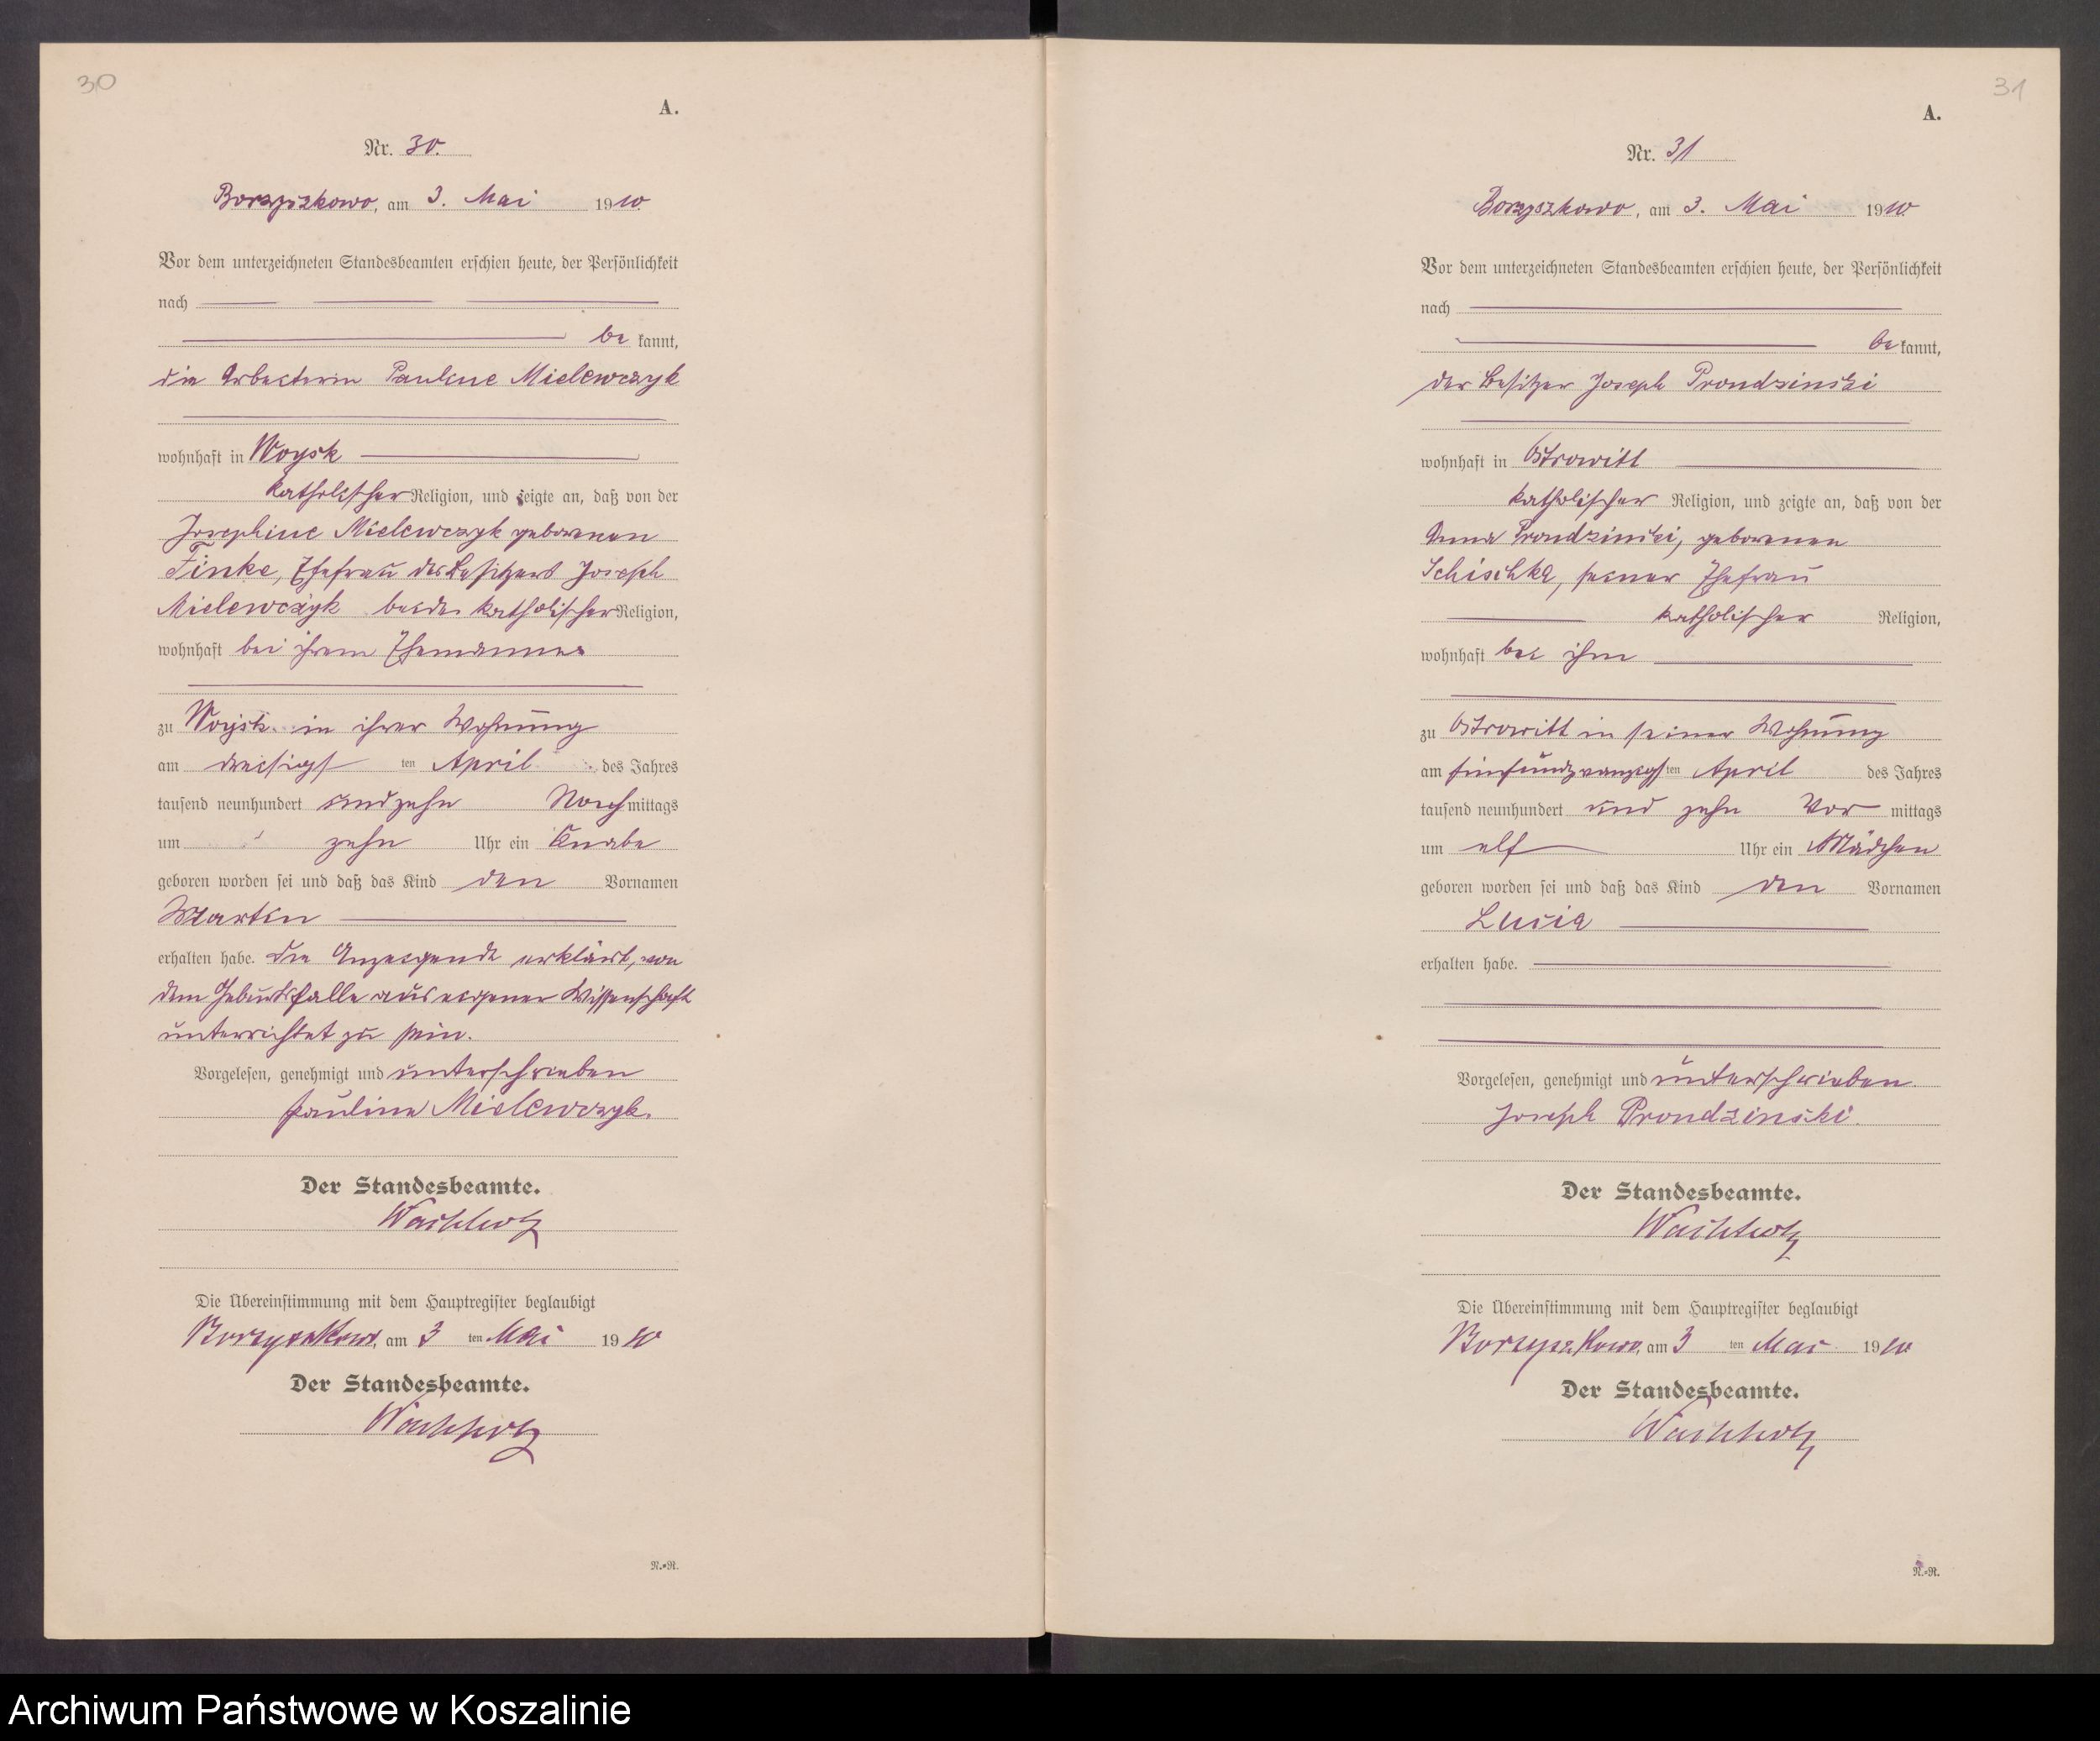 30
A.
Nr. 30.
Borzyszkowo, am 3. Mai 1910.
Vor dem unterzeichneten Standesbeamten erschien heute, der Persönlichkeit
nach
be kannt,
die Arbeiterin Pauline Mielewczyk
wohnhaft in Woysk
katholischer Religion, und zeigte an, daß von der
Josephine Mielewczyk geborenen
Finke, Ehefrau des Besitzers Joseph
Mielewczyk beide katholischer Religion,
wohnhaft bei ihrem Ehemanne
zu Woysk in ihrer Wohnung
am dreisigst ten April des Jahres
tausend neunhundert und zehn Nach mittags
um zehn Uhr ein Knabe
geboren worden sei und daß das Kind den Vornamen
Martin
erhalten habe. Die Anzeigende erklärt, von
dem Geburtsfalle aus eigener Wissenschaft
unterrichtet zu sein.
Vorgelesen, genehmigt und unterschrieben
Pauline Mielewczyk.
Der Standesbeamte.
Wachholz
Die Übereinstimmung mit dem Hauptregister beglaubigt
Borzyszkowo, am 3 ten Mai 1910
Der Standesbeamte.
Wachholz
N.=R.
31
A.
Nr. 31
Borzyszkowo, am 3. Mai 1910.
Vor dem unterzeichneten Standesbeamten erschien heute, der Persönlichkeit
nach
be kannt,
der Besitzer Joseph Prondzinski
wohnhaft in Ostrowitt
katholischer Religion, und zeigte an, daß von der
Anna Prondzinski, geborenen
Schischka, seiner Ehefrau
katholischer Religion,
wohnhaft bei ihm
zu Ostrowitt in seiner Wohnung
am fünfundzwanzigst ten April des Jahres
tausend neunhundert und zehn Vor mittags
um elf Uhr ein Mädchen
geboren worden sei und daß das Kind den Vornamen
Lucia
erhalten habe.
Vorgelesen, genehmigt und unterschrieben.
Joseph Prondzinski.
Der Standesbeamte.
Wachholz
Die Übereinstimmung mit dem Hauptregister beglaubigt
Borzyszkowo, am 3 ten Mai 1910
Der Standesbeamte.
Wachholz
N.=R.
Archiwum Państwowe w Koszalinie